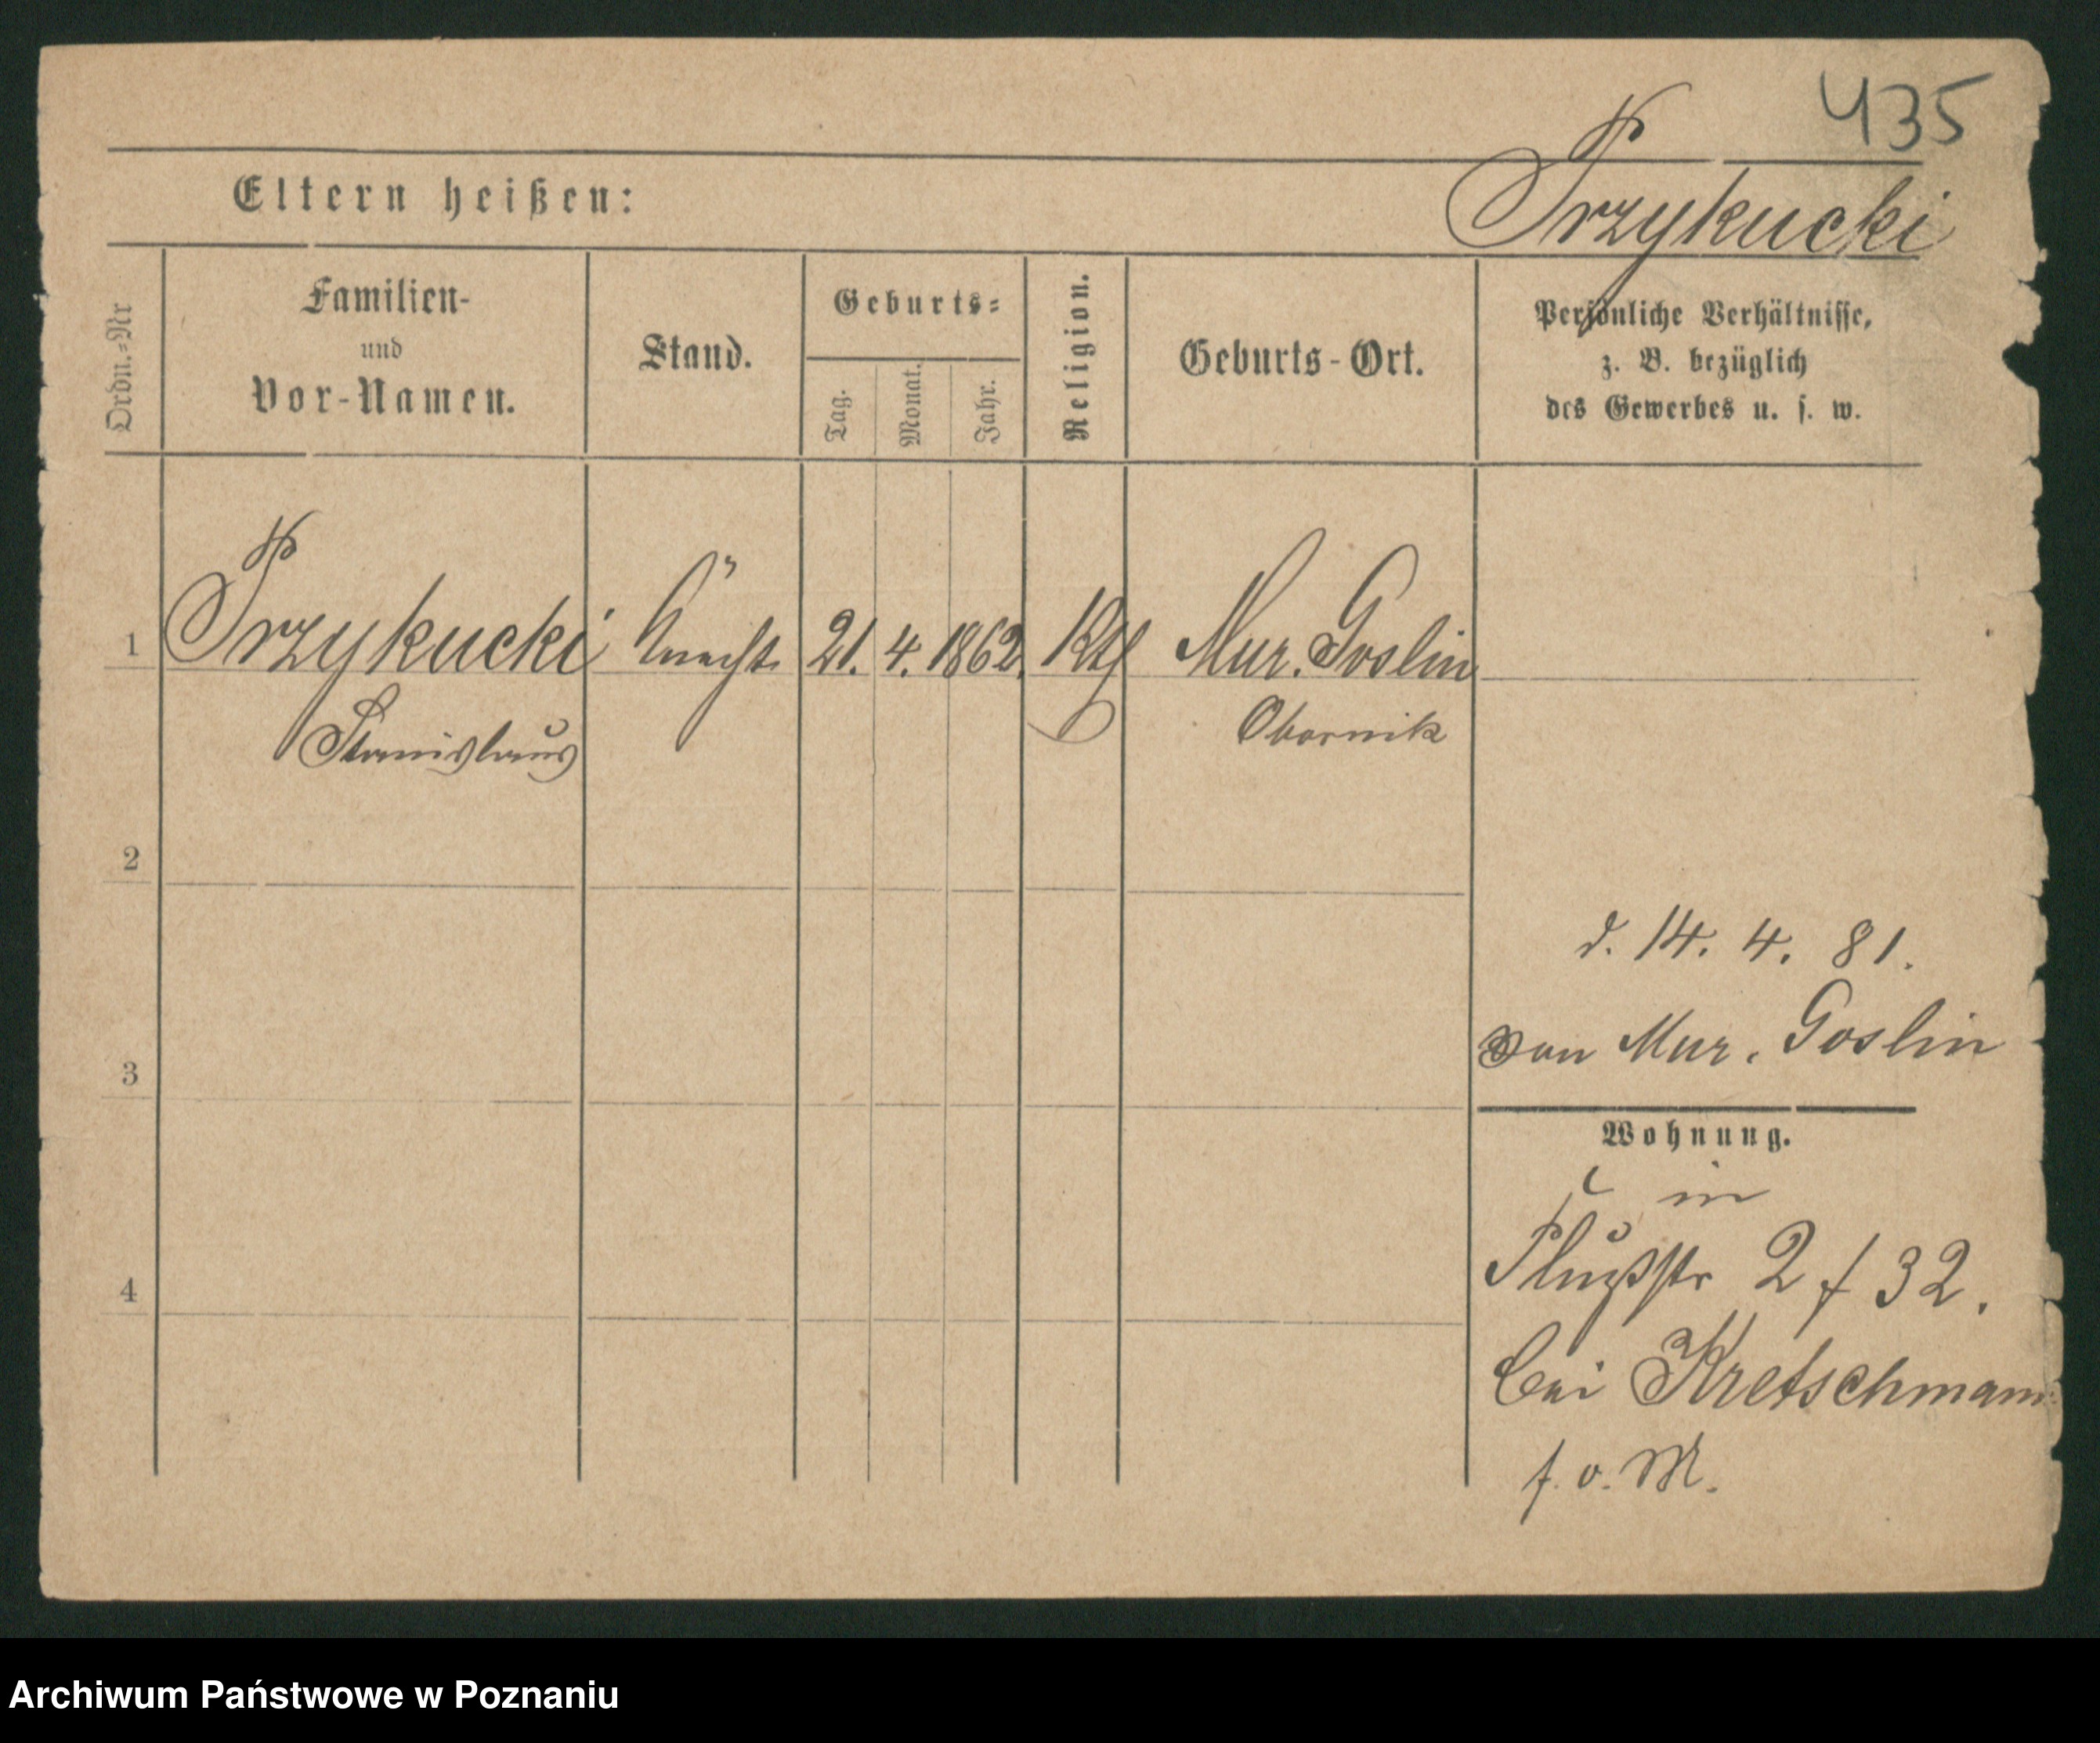 435
Eltern heißen:
Przykucki
Ordn.-Nr
Familien-
und
Vor-Namen.
Stand.
Geburts-
Tag.
Monat.
Jahr.
Religion.
Geburts-Ort.
Persönliche Verhältnisse,
z. B. bezüglich
des Gewerbes u. s. w.
1 Przykucki Knecht 21. 4. 1862. Kth Mur. Goslin
Stanislaus Obornik
2
d. 14. 4. 81.
von Mur. Goslin
3
Wohnung.
in
Flußstr 2 f 32.
4
bei Kretschmann
f. v. M.
Archiwum Państwowe w Poznaniu